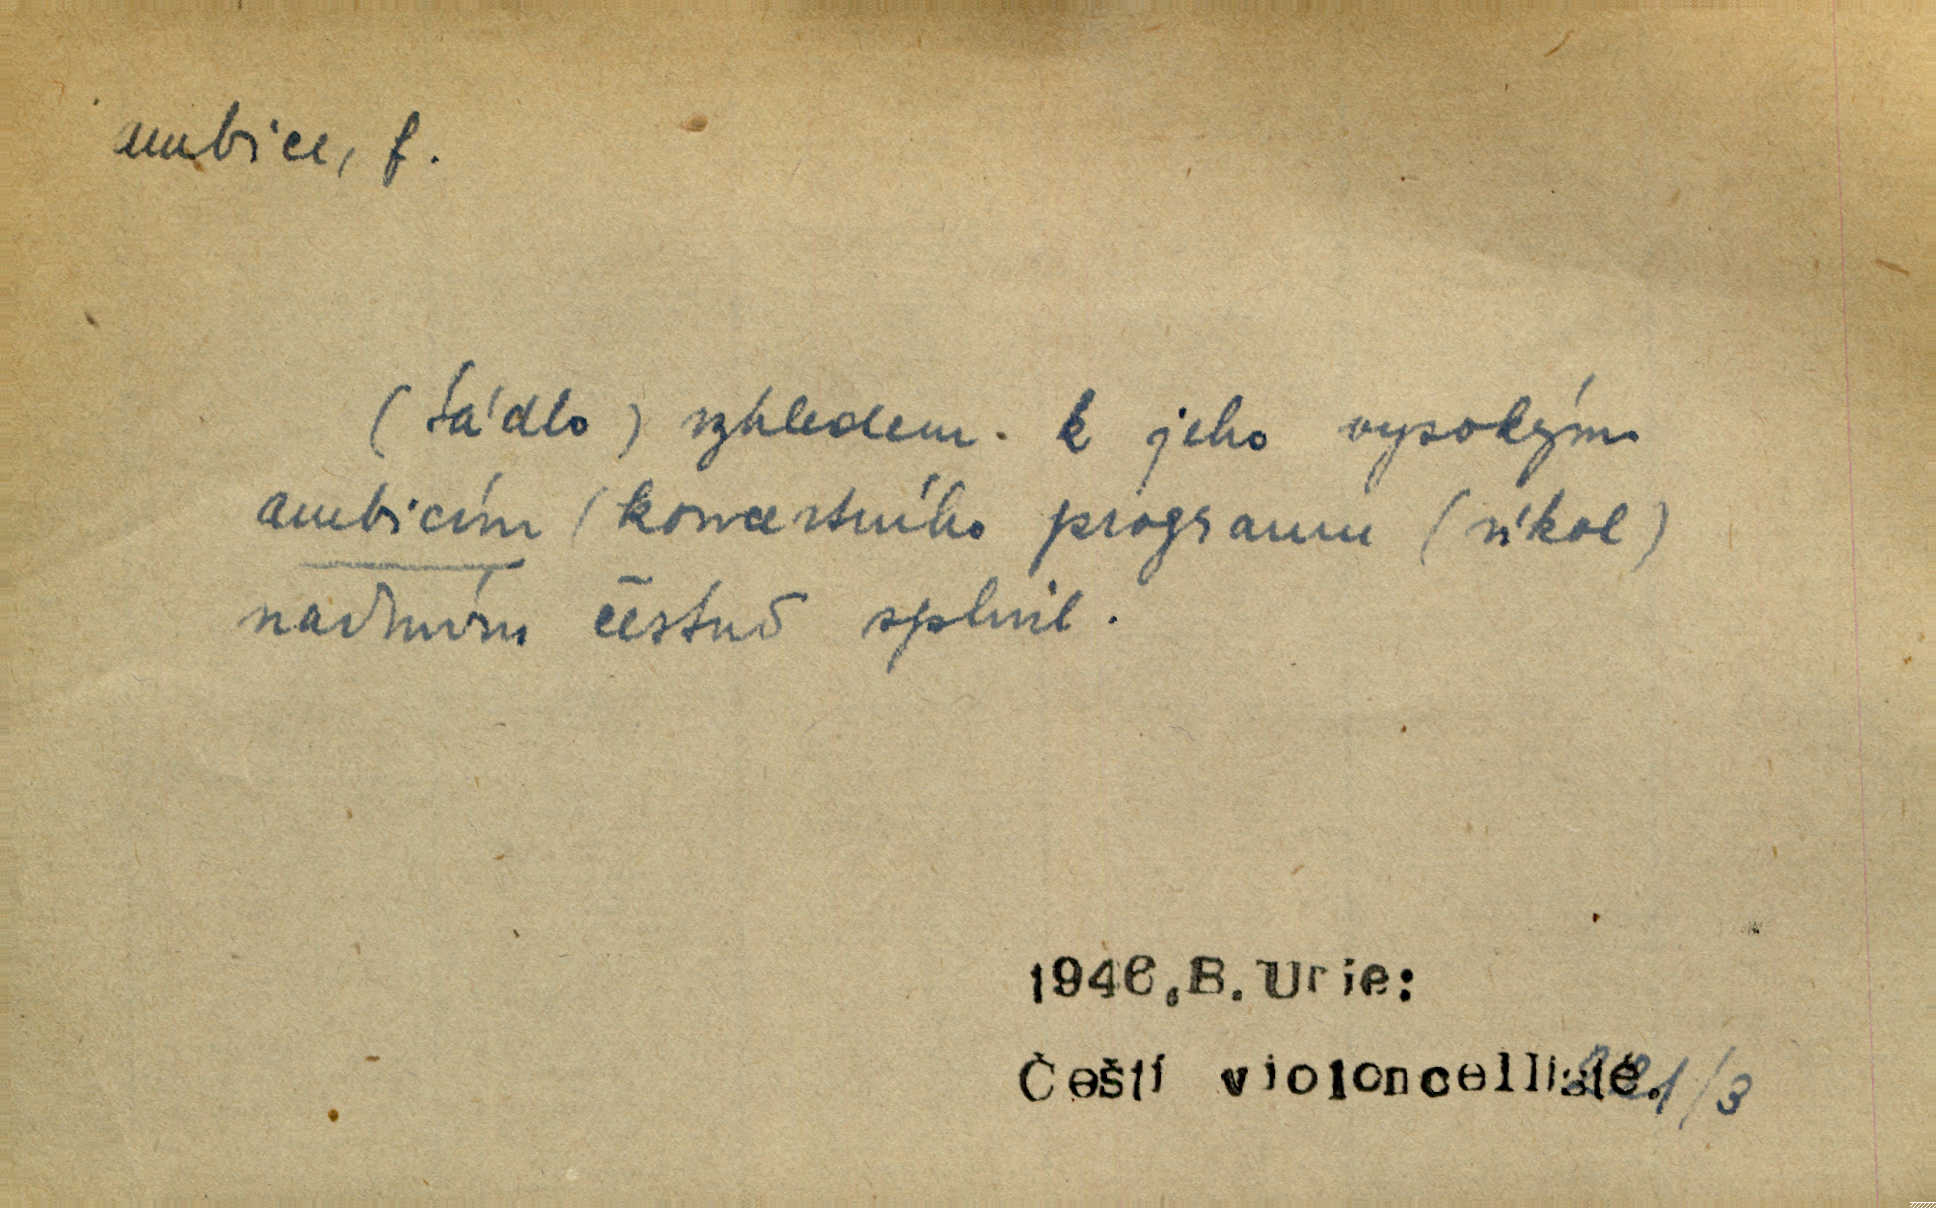 ambice, f.
(Sádlo) vzhledem k jeho vysokým
ambicím (koncertního programu (úkol)
nadmíru čestně splnil.
1946.B.Urie:
Čeští violoncellisté. 221/3